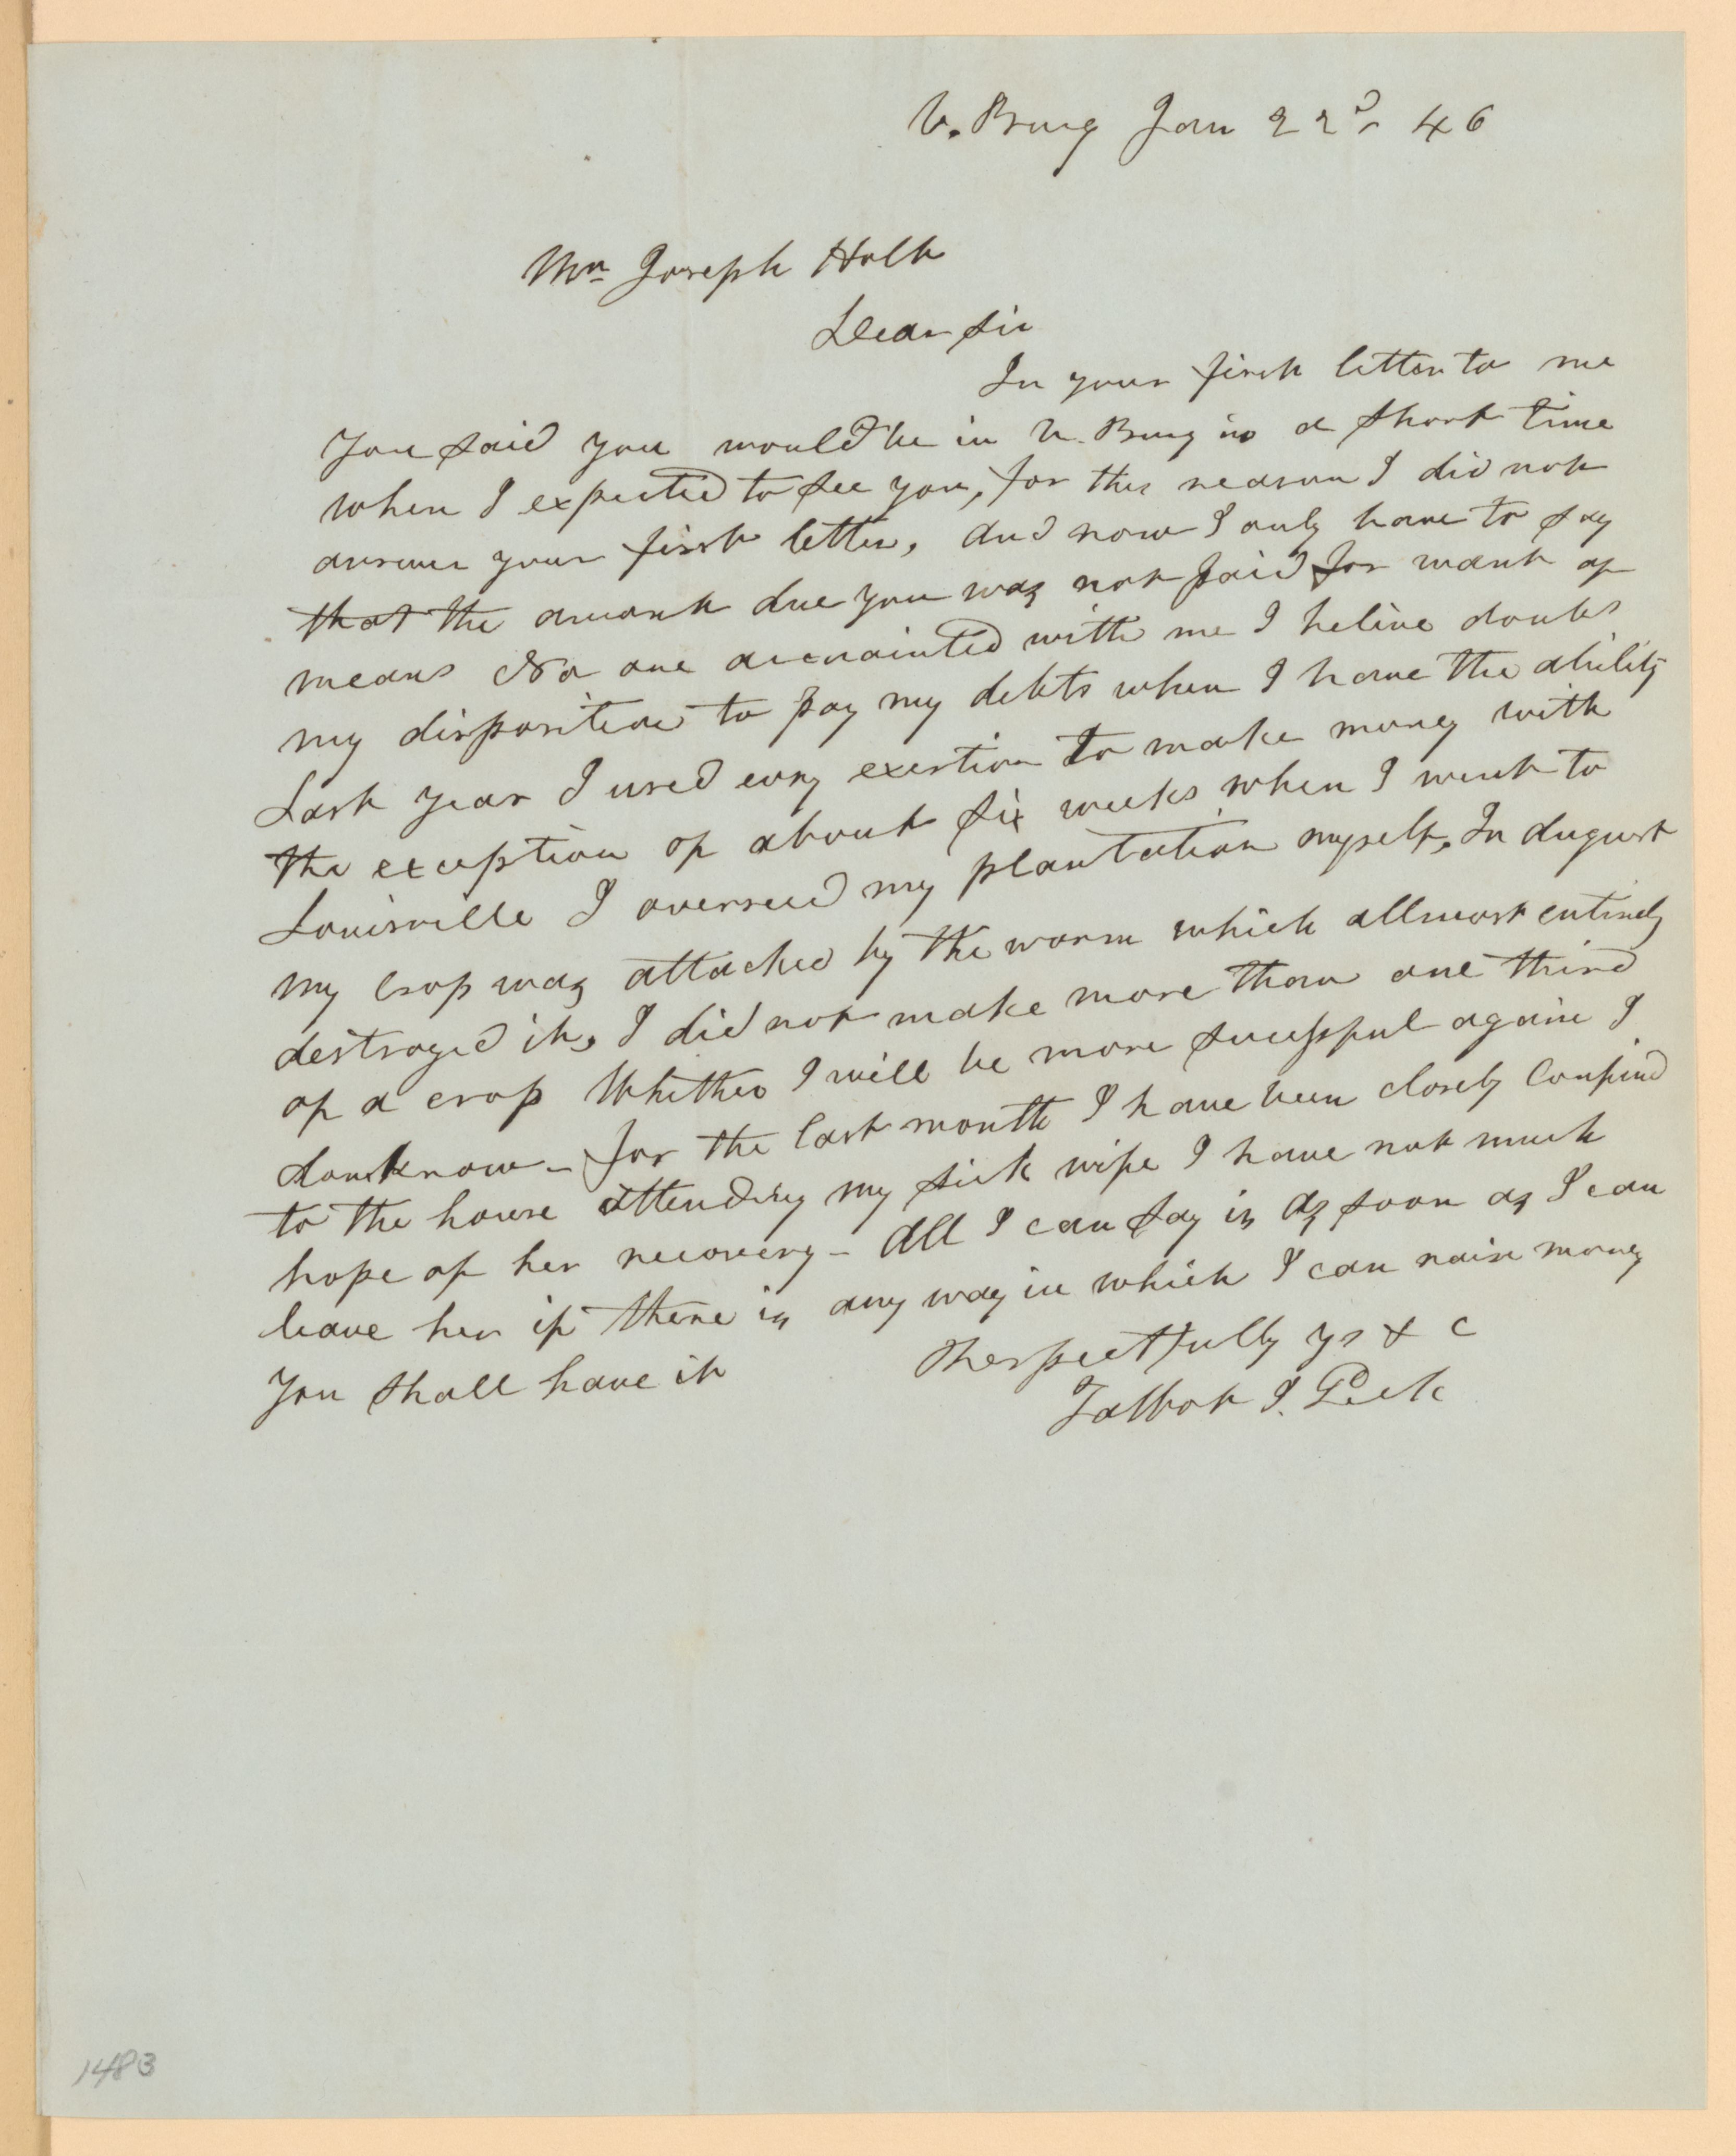 V. Burg Jan 22d 46
Mr Joseph Holt
Dear Sir
In your first letter to me
You said you would be in V. Burg in a short time
when I expected to see you, for this reason I did not
answer your first letter, And now I only have to say
that the amount due you was not paid for want of
means No one accuainted with me I belive doubts
my disposition to pay my debts when I have the ability
Last year I used evry exertion to make money with
the exception of about six weeks when I went to
Louisville I overseed my plantation myself, In August
my crop was attacked by the worm which allmost entirely
destroyed it, I did not make more than one third
of a crop Whether I will be more sucessful again I
dont know - for the last month I have been closely confind
to the house attending my sick wife I have not much
hope of her recovery - All I can say is as soon as I can
leave her if there is any way in which I can raise money
You shall have it
Respectfully ys & c
Talbot I. Peck
1483